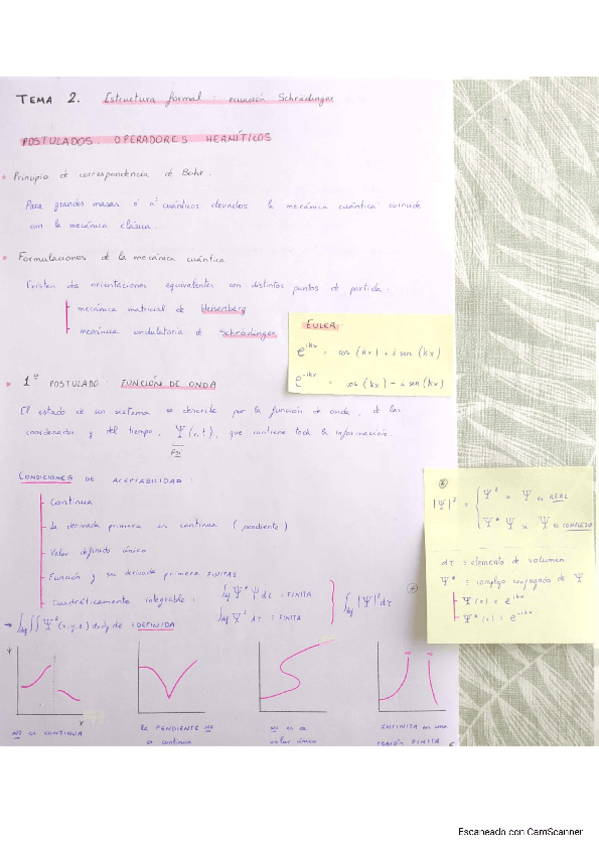 TEMA 2. Estructura formal: ecuación Schrödinger
POSTULADOS. OPERADORES HERMÍTICOS
Principio de correspondencia de Bohr.
Para grandes masas o nº cuánticos elevados la mecánica cuántica coincide
con la mecánica clásica.
Formulaciones de la mecánica cuántica
Existen dos orientaciones equivalentes con distintos puntos de partida.
mecánica matricial de Heisenberg
mecánica ondulatoria de Schrödinger
EULER:
e^ikx = cos (kx) + i sen (kx)
e^-ikx = cos (kx) - i sen (kx)
1er POSTULADO: FUNCIÓN DE ONDA
El estado de un sistema se describe por la función de onda, de las
coordenadas y del tiempo, Ψ(r,t), que contiene toda la información.
Psi
CONDICIONES DE ACEPTABILIDAD:
Continua
La derivada primera es continua (pendiente)
Valor definido único
Función y su derivada primera FINITAS
Cuadráticamente integrable: ∫ Ψ* Ψ dτ : FINITA
∫ Ψ² dτ : FINITA
∫ |Ψ|² dτ
→ ∫∫∫ Ψ²(x,y,z) dxdydz : DEFINIDA
|Ψ|² = { Ψ² si Ψ es REAL
Ψ* Ψ si Ψ es COMPLEJO
dτ = elemento de volumen
Ψ* = complejo conjugado de Ψ
Ψ(x) = e^ikx
Ψ*(x) = e^-ikx
Ψ
x
NO es CONTINUA
la PENDIENTE NO
es continua
NO es de
valor único
∞ ∞
INFINITA en una
REGIÓN FINITA
Escaneado con CamScanner